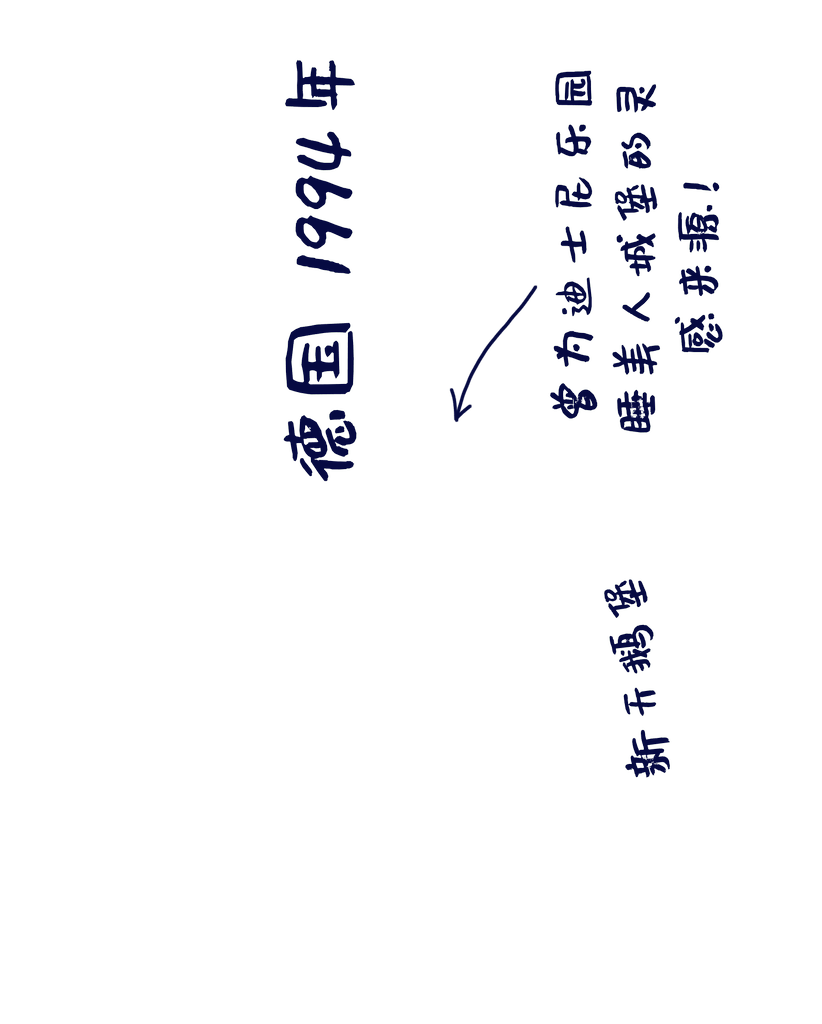 德国 1994年
曾为迪士尼乐园
睡美人城堡的灵
感来源！
新天鹅堡